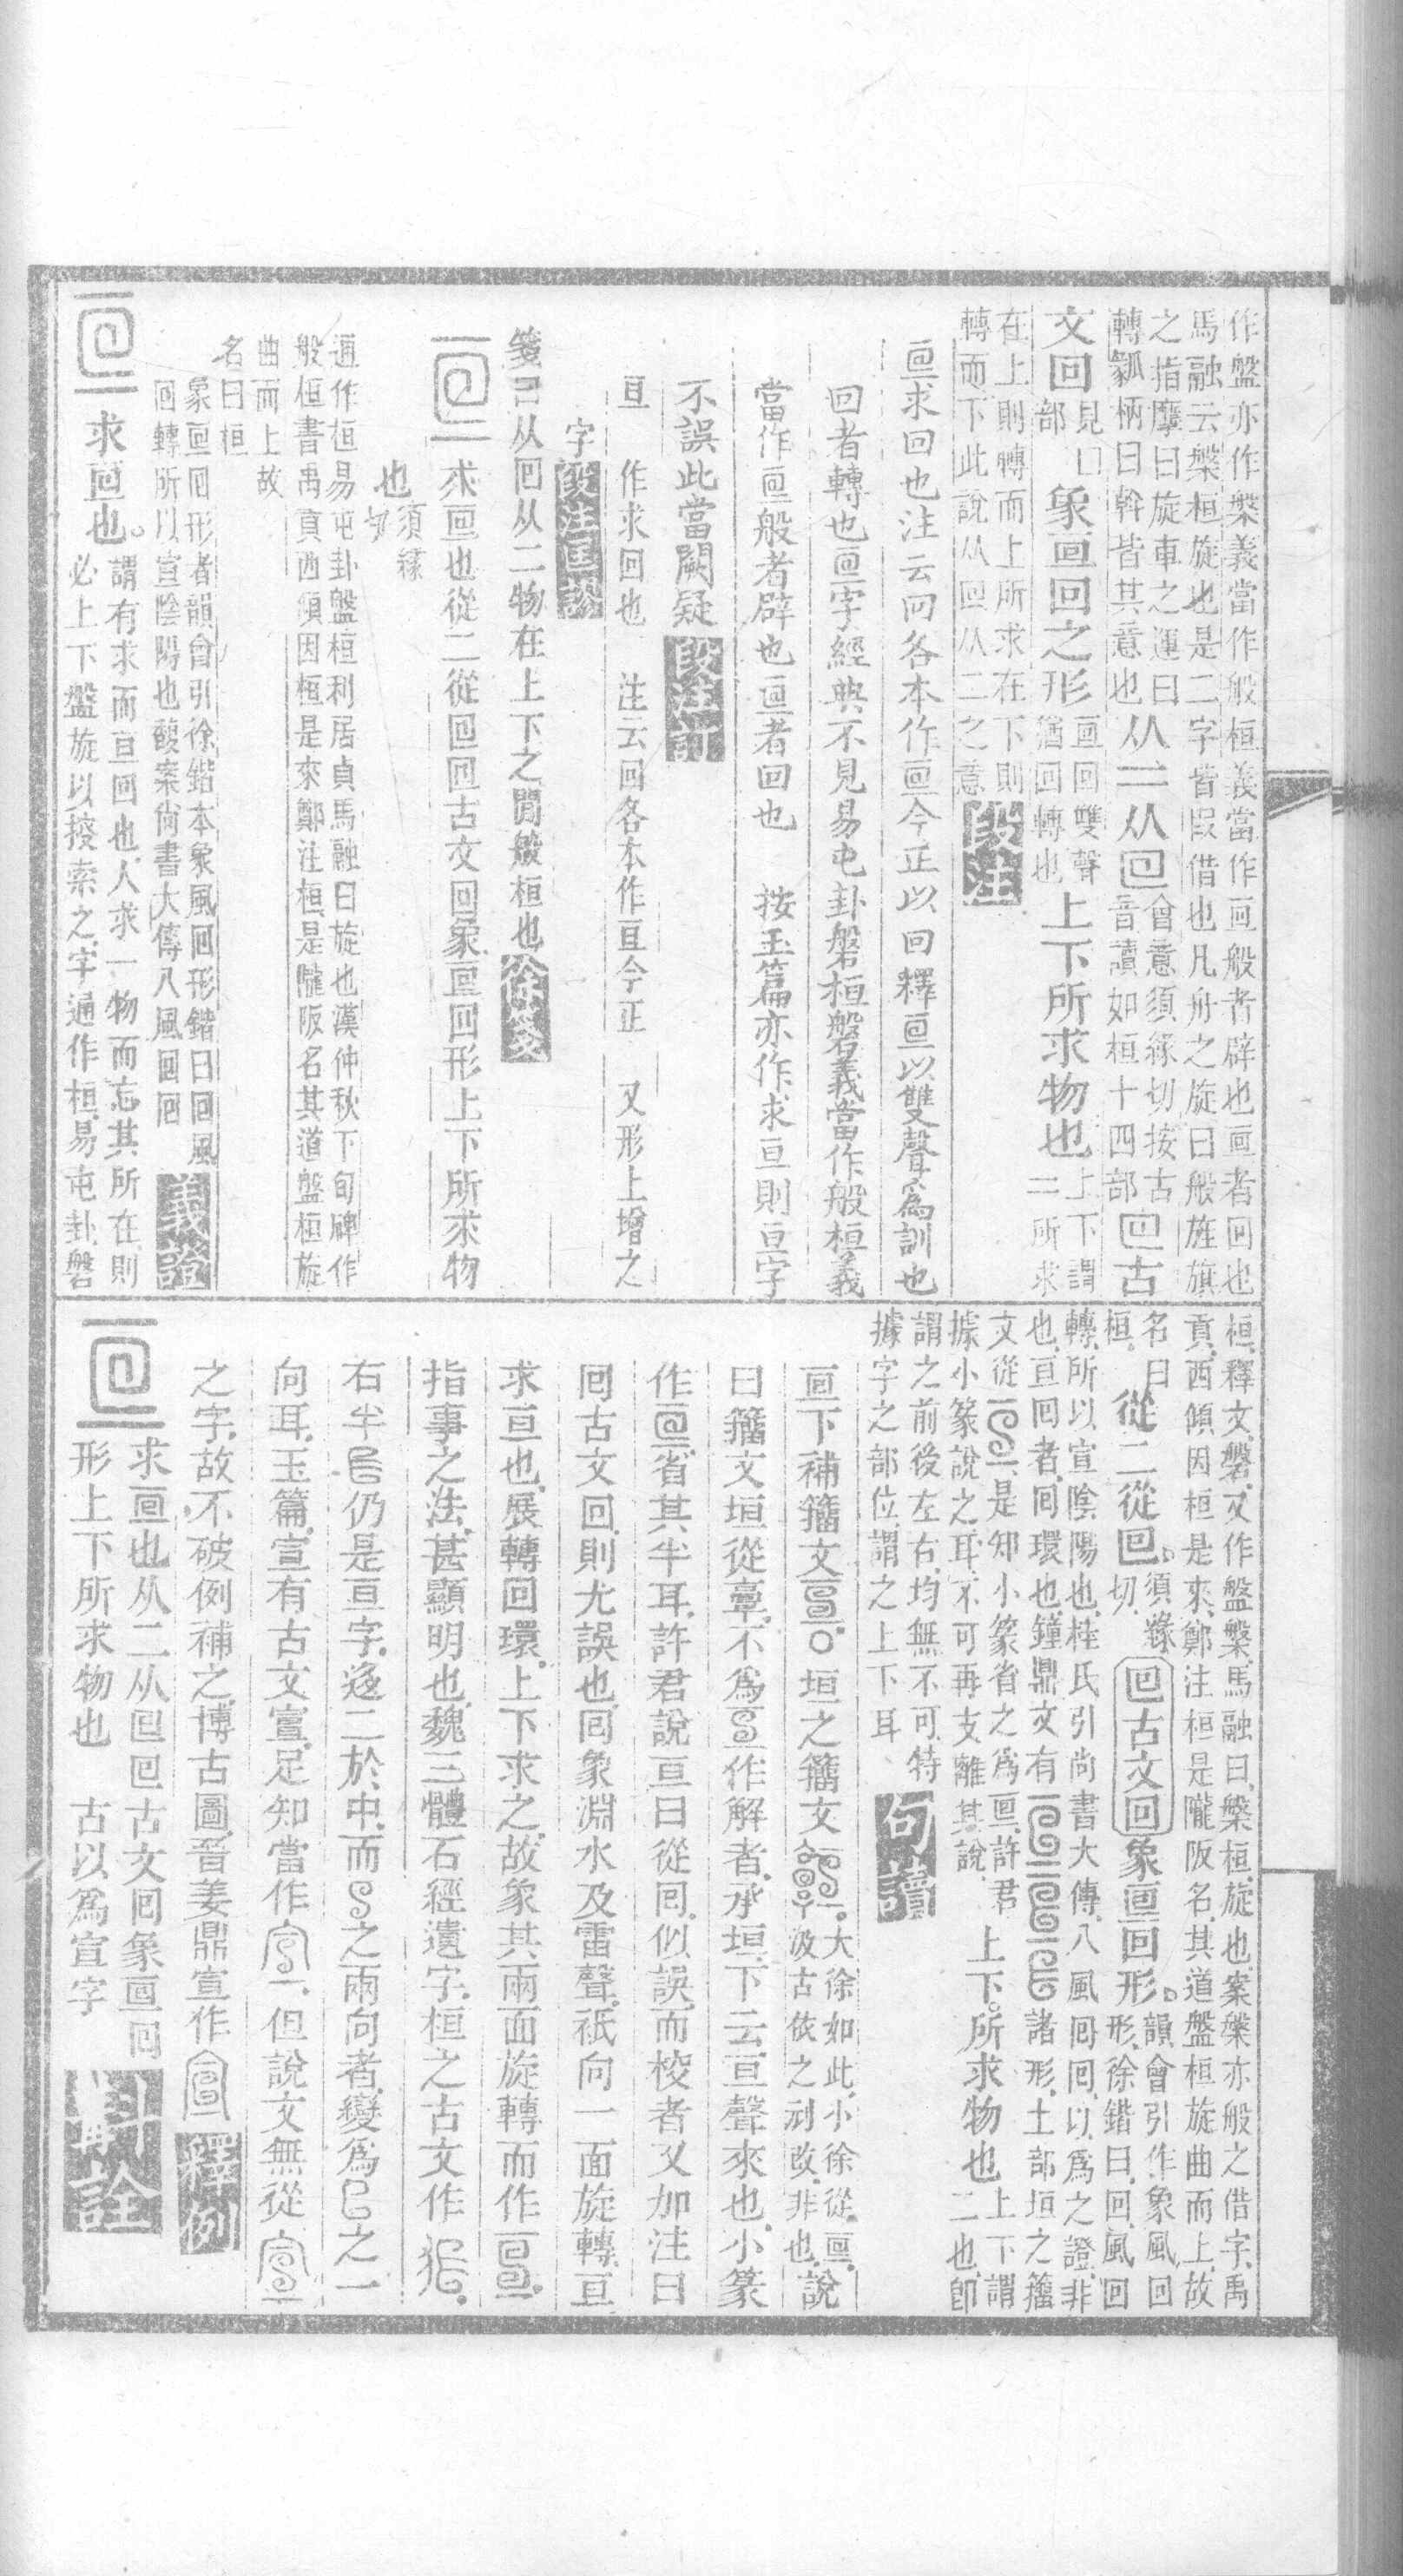 作盤亦作槃義當作般桓義當作亘般者辟也亘者回也
馬融云槃桓旋也是二字皆叚借也凡舟之旋曰般旌旗
之指摩曰旋車之運曰
轉瓢柄曰斡皆其意也
从二从囘
會意須緣切按古
音讀如桓十四部
囘古
文回
見囗
部
象亘回之形
亘回雙聲
猶回轉也
上下所求物也
上下謂
二所求
在上則轉而上所求在下則
轉而下此說从囘从二之意
段注
亘求回也注云回各本作亘今正以回釋亘以雙聲爲訓也
回者轉也亘字經典不見易屯卦磐桓磐義當作般桓義
當作亘般者辟也亘者回也 按玉篇亦作求亘則亘字
不誤此當闕疑
段注訂
亘 作求回也 注云回各本作亘今正 又形上增之
字
段注匡謬
箋曰从回从二物在上下之閒般桓也
徐箋
求亘也從二從囘囘古文回象亘回形上下所求物
也
須緣
切
通作桓易屯卦盤桓利居貞馬融曰旋也漢仲秋下旬碑作
般桓書禹貢西傾因桓是來鄭注桓是隴阪名其道盤桓旋
曲而上故
名曰桓
象亘囘形者韻會引徐鍇本象風囘形鍇曰囘風
回轉所以宣陰陽也馥案尙書大傳八風囘囘
義證
求亘也。
謂有求而亘回也人求一物而忘其所在則
必上下盤旋以搜索之字通作桓易屯卦磐
桓釋文磐又作盤槃馬融曰槃桓旋也案槃亦般之借字禹
貢西傾因桓是來鄭注桓是隴阪名其道盤桓旋曲而上故
名曰
桓
從二從囘。
須緣
切
囘古文回
象亘回形。
韻會引作象風回
形徐鍇曰回風回
轉所以宣陰陽也桂氏引尚書大傳八風囘囘以爲之證非
也亘回者囘環也鐘鼎文有 諸形土部垣之籀
文從 是知小篆省之爲亘許君
據小篆說之耳不可再支離其說
上下。所求物也
上下謂
二也卽
謂之前後左右均無不可特
據字之部位謂之上下耳
句讀
亘下補籀文 ○垣之籀文
大徐如此小徐從亘說
汲古依之刓改非也
曰籀文垣從𩫖不爲 作解者承垣下云亘聲來也小篆
作 省其半耳許君說亘曰從囘似誤而校者又加注曰
囘古文回則尤誤也囘象淵水及雷聲祇向一面旋轉亘
求亘也展轉回環上下求之故象其兩面旋轉而作
指事之法甚顯明也魏三體石經遺字桓之古文作
右半 仍是亘字迻二於中而 之兩向者變爲 之一
向耳玉篇宣有古文 足知當作 但說文無從
之字故不破例補之博古圖晉姜鼎宣作
釋例
求亘也从二从囘囘古文回象亘回
形上下所求物也 古以爲宣字
斠詮